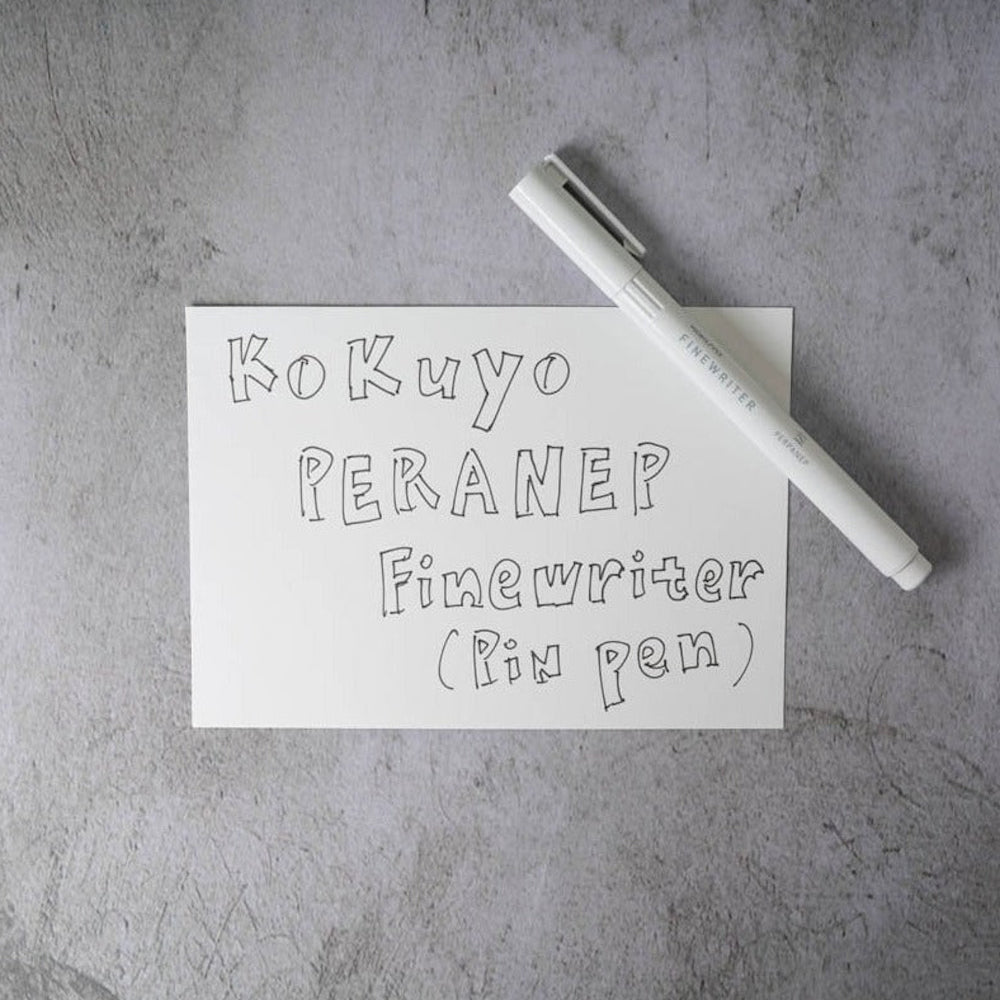 KoKuyo
PERANEP
Finewriter
(PiN pen)
FINEWRITER
PERPANEP